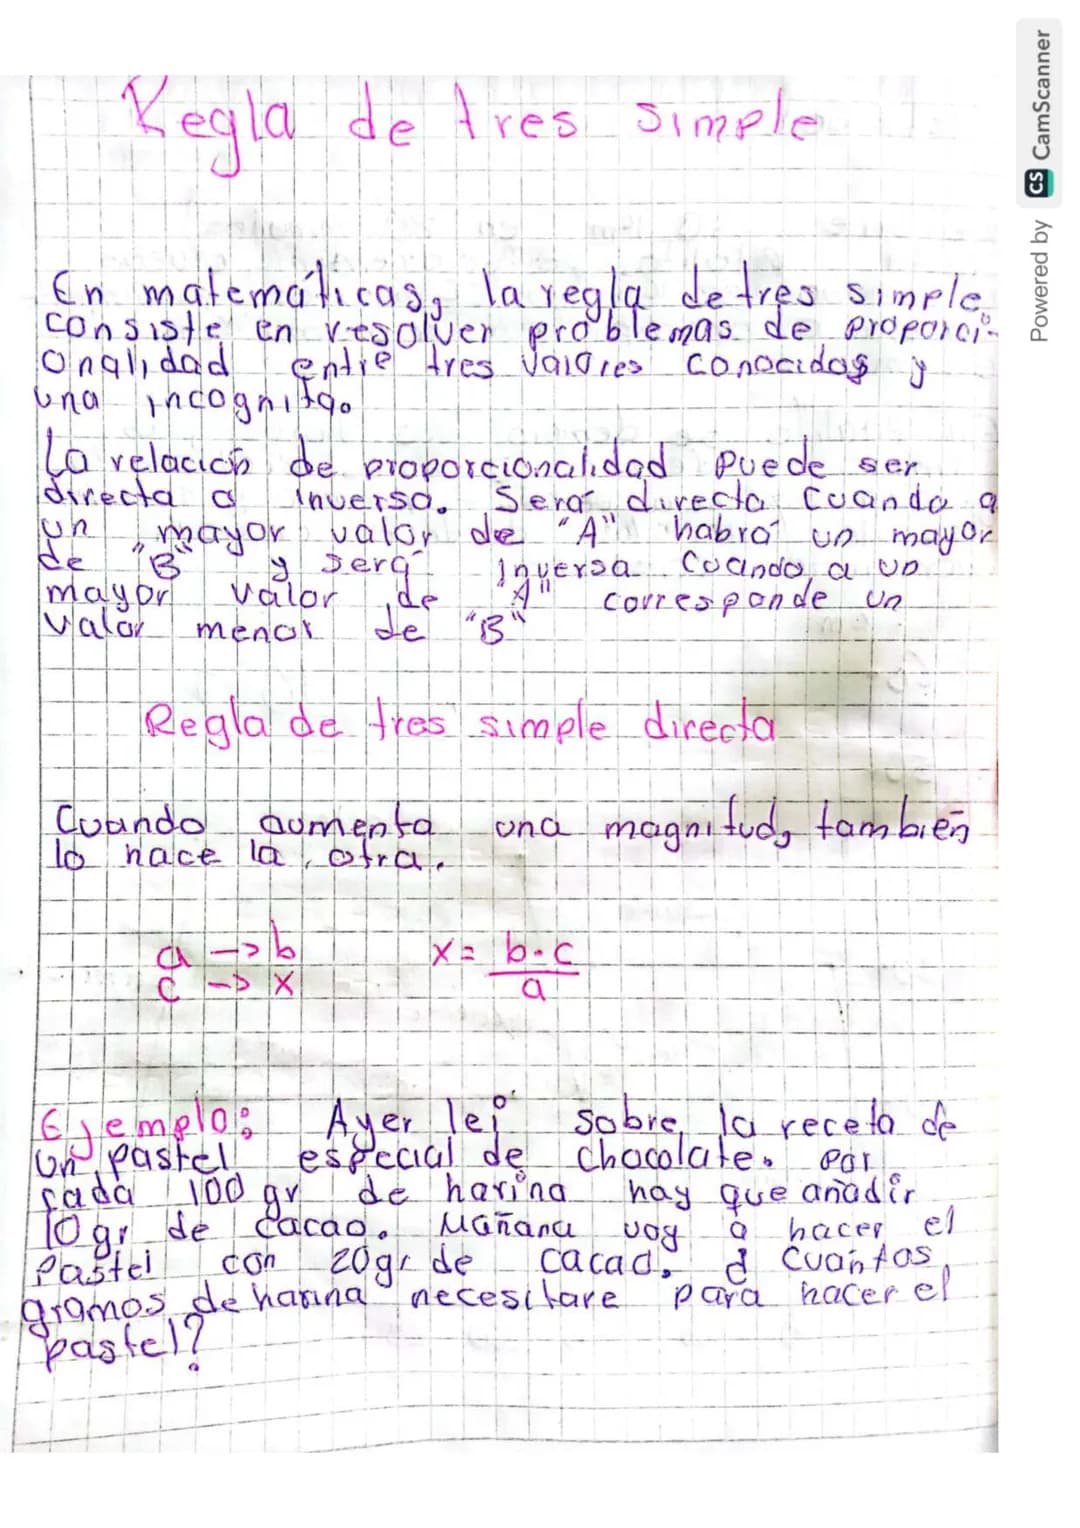 Regla de tres simple
En matemáticas, la regla de tres simple
consiste en resolver problemas de proporci-
onalidad entre tres valores conocidos y
una incognita.
La relación de proporcionalidad puede ser
directa o inversa. Será directa cuando a
un mayor valor de "A" habrá un mayor
de "B" y será inversa cuando, a un
mayor valor de "A" corresponde un
valor menor de "B"
Regla de tres simple directa
Cuando aumenta una magnitud, también
lo hace la otra.
a -> b x = b·c
c -> x a
Ejemplo: Ayer leí sobre la receta de
un pastel especial de chocolate. Por
cada 100 gr de harina hay que añadir
10 gr de cacao. Mañana voy a hacer el
pastel con 20gr de cacao. ¿ Cuántos
gramos de harina necesitare para hacer el
pastel?
Powered by CS CamScanner